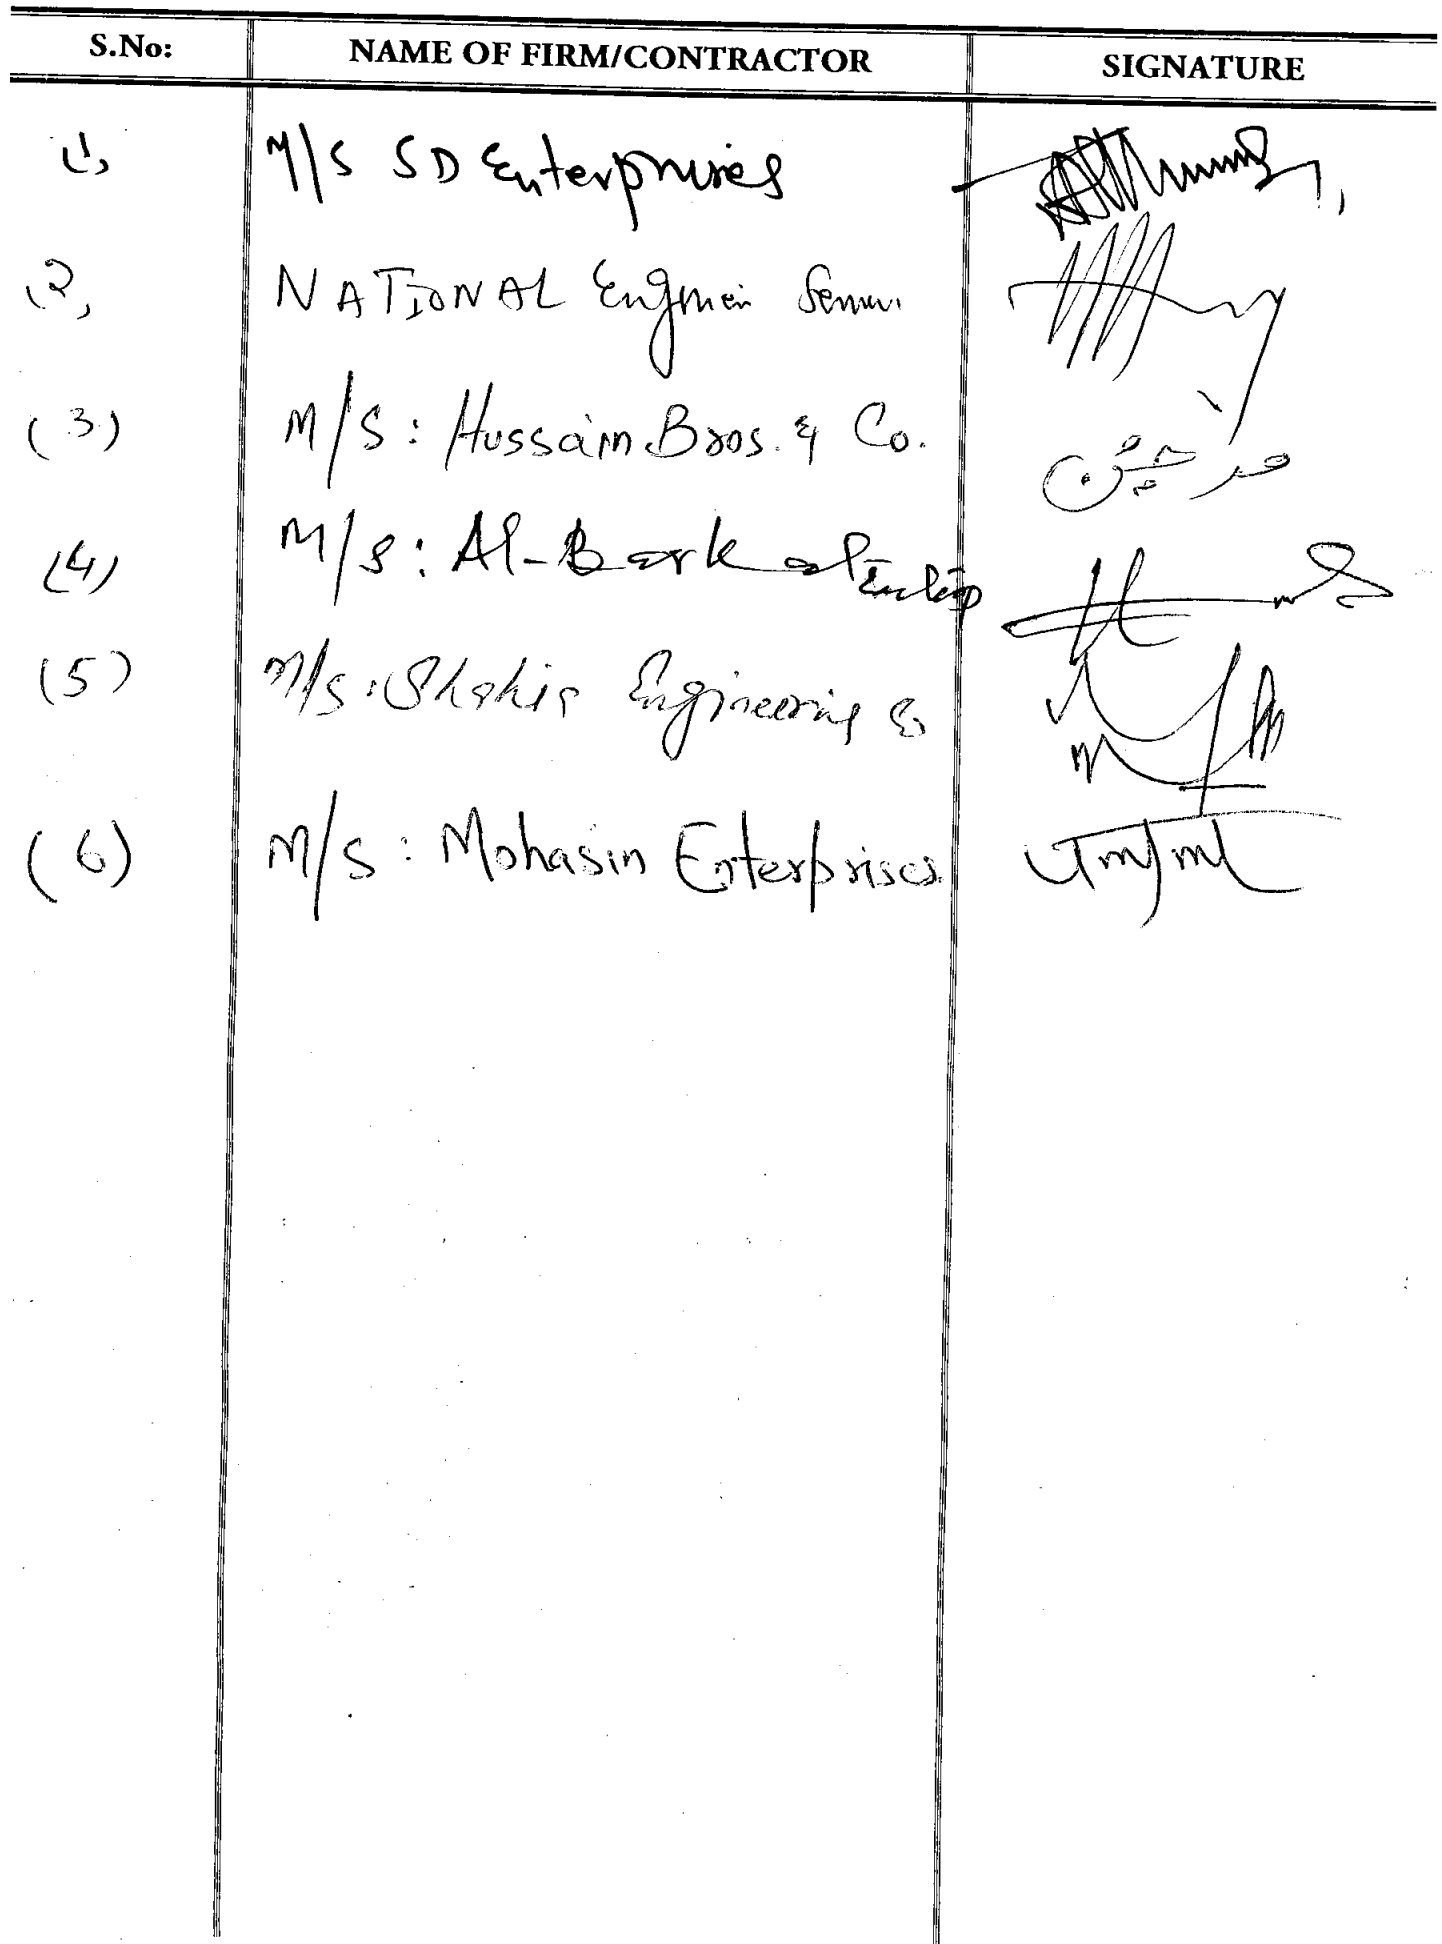 S.No: NAME OF FIRM/CONTRACTOR SIGNATURE
(1) M/S SD Enterprises
(2) NATIONAL
(3) M/S: Hussain Bros. & Co.
(4) M/S: Al-Barkat
(5) M/S: Shakir Engineering &
(6) M/S: Mohasin Enterprises